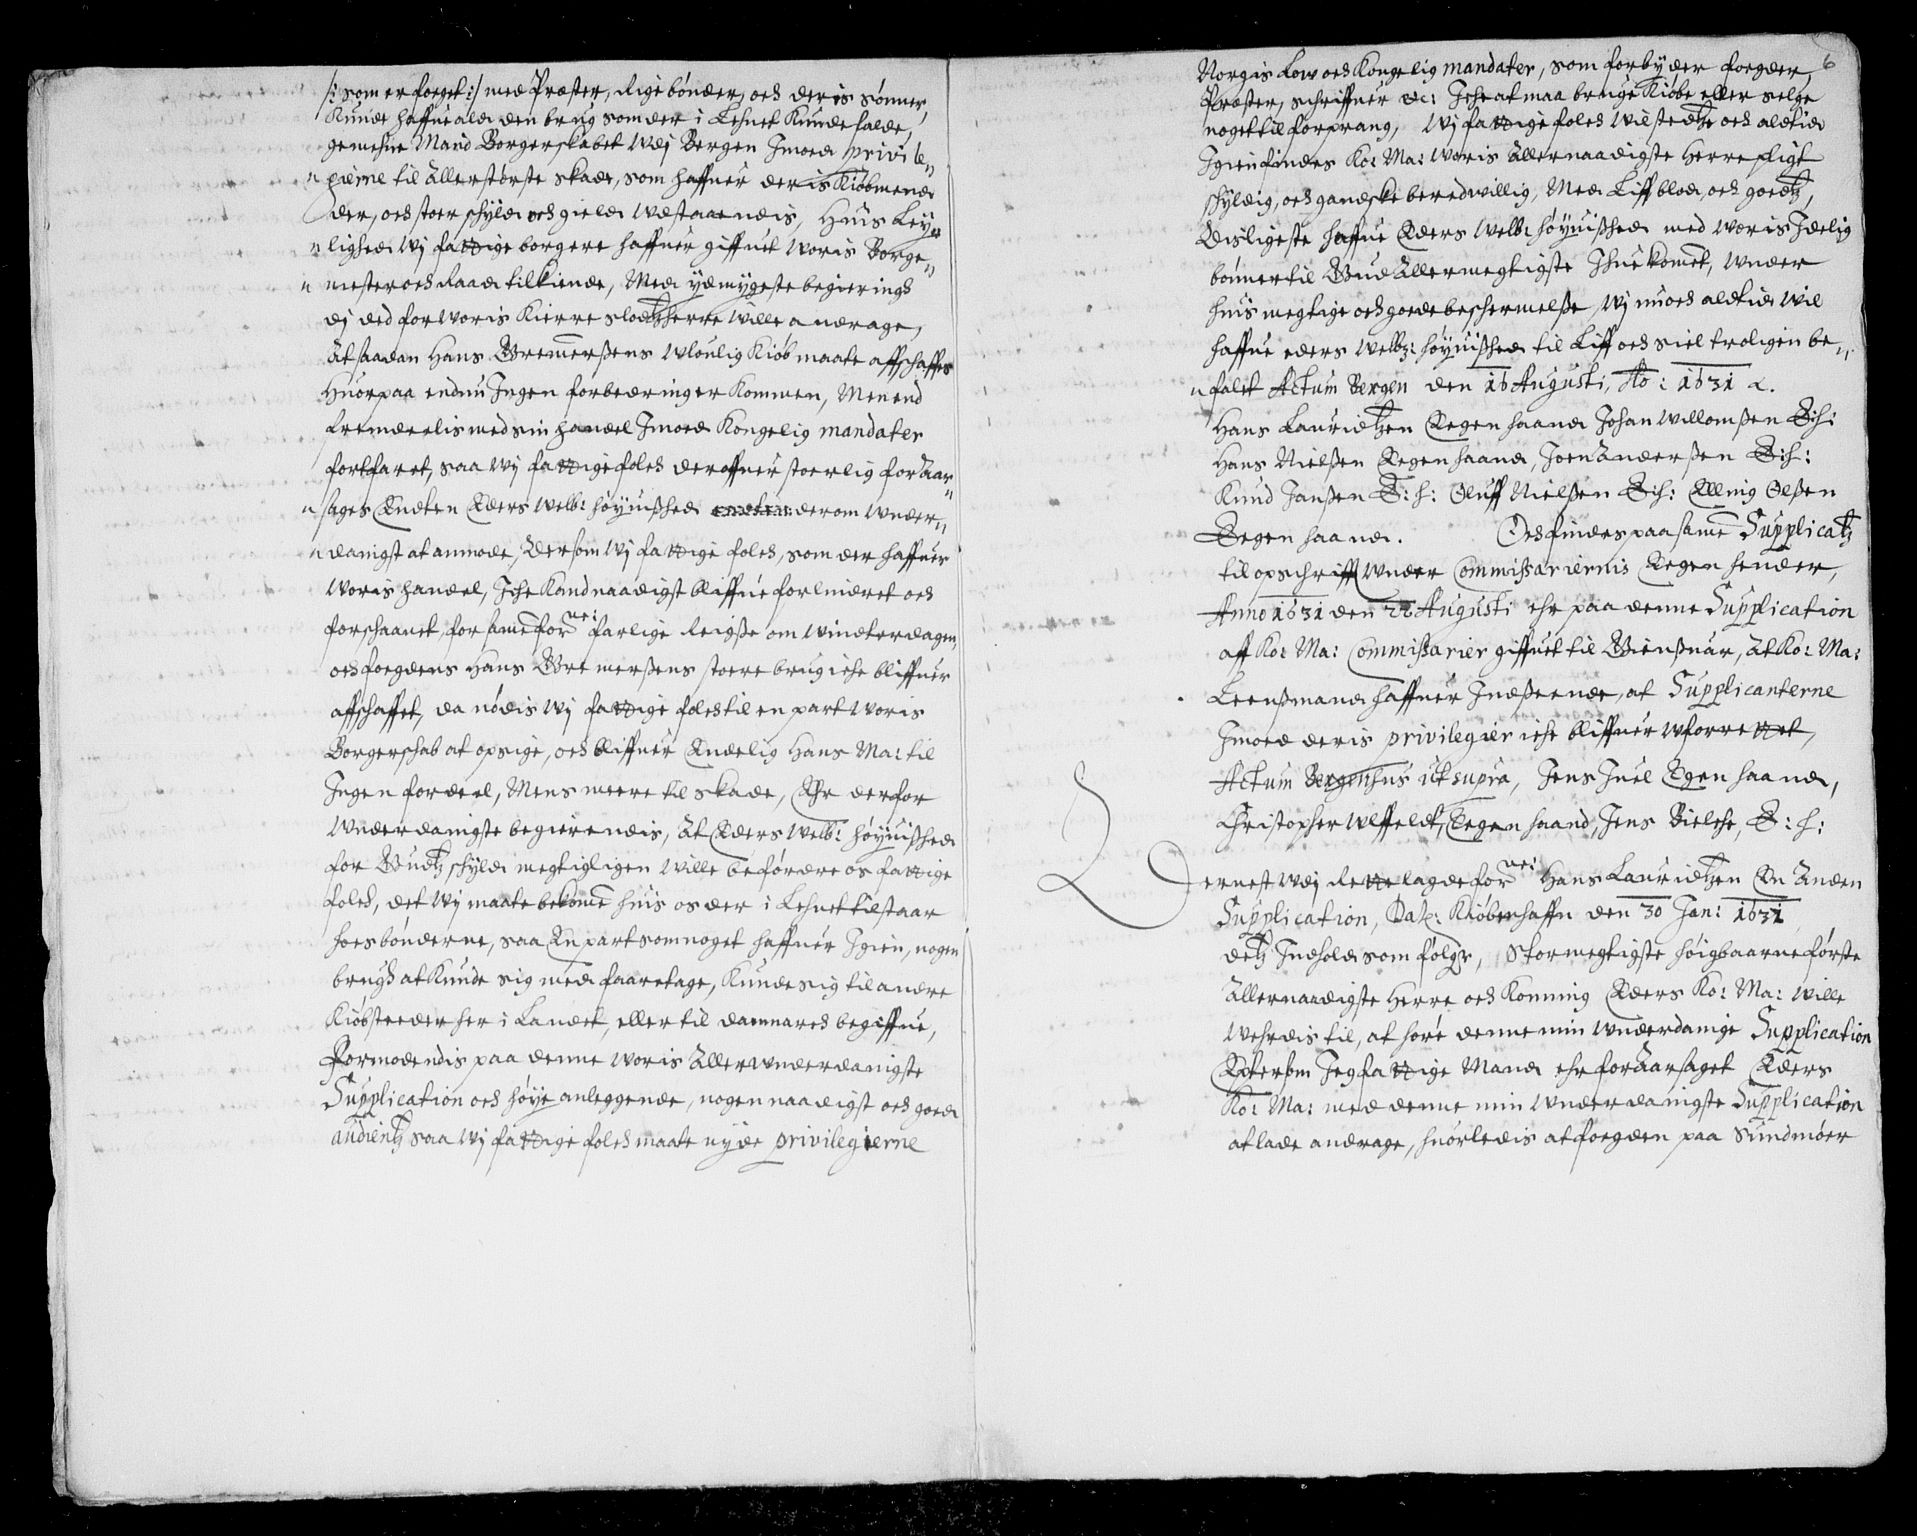 /: som er foeget :/ med Præster, Rige bønder, och deris sønner,
Kunde haffue ald den brug som der i Lehnet Kunde falde,
gemehne Mand Borgerskabet wdj Bergen Imoed privile„
„gierne til Allerstørste skade, som haffuer deris Kiøbmend
der, och stoer schyld och gield wdstaaendis, Huis Ley„
„lighed wj fattige borgere haffuer giffuet woris Borge„
„mester och Raad tilkiende, Med ydmygeste begiering
dj ded for woris Kierre slotzherre wille andrage,
At saadan Hans Bremerßens wloulig Kiøbmaate affschaffes
Huorpaa endnu Ingen forbedringer Kommen, Men end
fremdeelis med sin handel Imoed Kongelig mandater
fortfaret, saa wj fattige folch derofuer stoerlig foraar„
„sages Endten Eders welb: høyuißhed derom wnder„
„danigst at anmode, Dersom wj fattige folch, som der haffuer
woris handel, Iche Kand naadigst bliffue forlindret och
forschaanet, for samme forne: farlige Reigße om windterdagen,
och foegdens Hans Bremerßens stoere brug iche bliffuer
affschaffet, da nødis wj fattige folch til en part woris
Borgerschab at opsige, och bliffuer Endelig Hans Ma: til
Ingen fordeel, Mens meere til skade, Ehr derfor
wnderdanigste begierendis, At Eders welb: høyuißhed
for Gudtz schyld megtigligen wille befordre os fattige
folch, det wj maate bekomme huis os der i Lehnet tilstaar
hoes bønderne, saa En part som noget haffuer Igien, nogen
brugh at Kunde sig med faaretage, Kunde sig til andre
Kiøbsteeder her i Landet, eller til danmarch begiffue,
Formodendis paa denne woris Allerwnderdanigste
Supplication och høye anleggende, nogen naadigst och goed
audientz saa wj fattige folch maate nyde privilegierne
6
Norgis Low och Kongelig mandater, som forbyder foegder,
Præster, schriffuer &c: Iche at maa bruge Kiøbe eller selge
noget til forprang, Wj fattige folch wil stedtze och altid
Igien findes Ko: Ma: woris Allernaadigste Herre pligt
schyldig, och gandske beredwillig, Med Liff blod, och goedtz,
Disligeste haffue Eders welb: høyuißhed med woris Idelig
bønner til Gud Allermegtigste Ihukommet, wnder
huis megtige och goede beschermelße wj nu och altid wil
haffue eders welb: høyuißhed til Liff och siel troligen be„
„falit Actum Bergen den 16 Augusti, Ao: 1631 &.
Hans Lauridtzen Egen haand Johan willomßen E:h:
Hans Nielßen Egen haand, Joen Anderßen E:h:
Knud Janßen E:h: Oluff Nielßen E:h: Elling Olßen
Eegen haand. Och findes paa samme Supplicatz
til opschrifft wnder Commißariernis Eegen hender,
Anno 1631 den 22 Augusti ehr paa denne Supplication
aff Ko: Ma: Commißarier giffuet til Gienßuar, At Ko: Ma:
Leenßmand haffuer Indßeende, at Supplicanterne
Imoed deris privilegier iche bliffuer wforrettet,
Actum Bergenhus ut supra, Jens Juel Egen haand,
Christopher Wlffeldt, Eegen haand, Jens Bielche, E:h:
Dernest wdj Rette lagde forne: Hans Lauridtzen En Anden
Supplication, Dat: Kiøbenhaffn den 30 Jan: 1631
detz Indhold som følger, Stormegtigste høigbaarne første
Allernaadigste Herre och Konning Eders Ko: Ma: wille
wehrdis til, at høre denne min wnderdanige Supplication
Efftersom Jeg fattige Mand ehr foraarsaget Eders
Ko: Ma: med denne min wnderdanigste Supplication
at lade andrage, huorledis at foegden paa Sundmøer